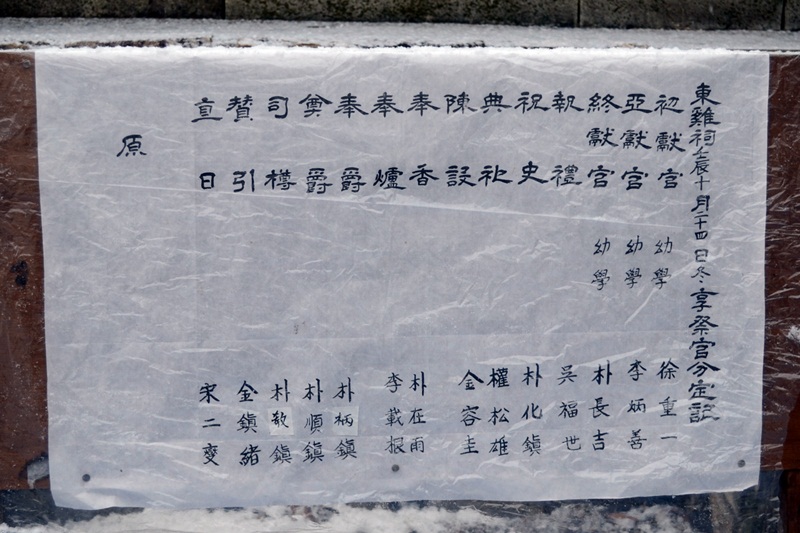 東雞祠壬辰十月二十四日冬享祭官分定記
初獻官 幼學 徐重一
亞獻官 幼學 李炳善
終獻官 幼學 朴長吉
執禮 吳福世
祝史 朴化鎭
典祀 權松雄
陳設 金容圭
奉香 朴在雨
奉爐 李載根
奉爵 朴柄鎭
奠爵 朴順鎭
司樽 朴敬鎭
贊引 金鎭緖
直日 宋二燮
原